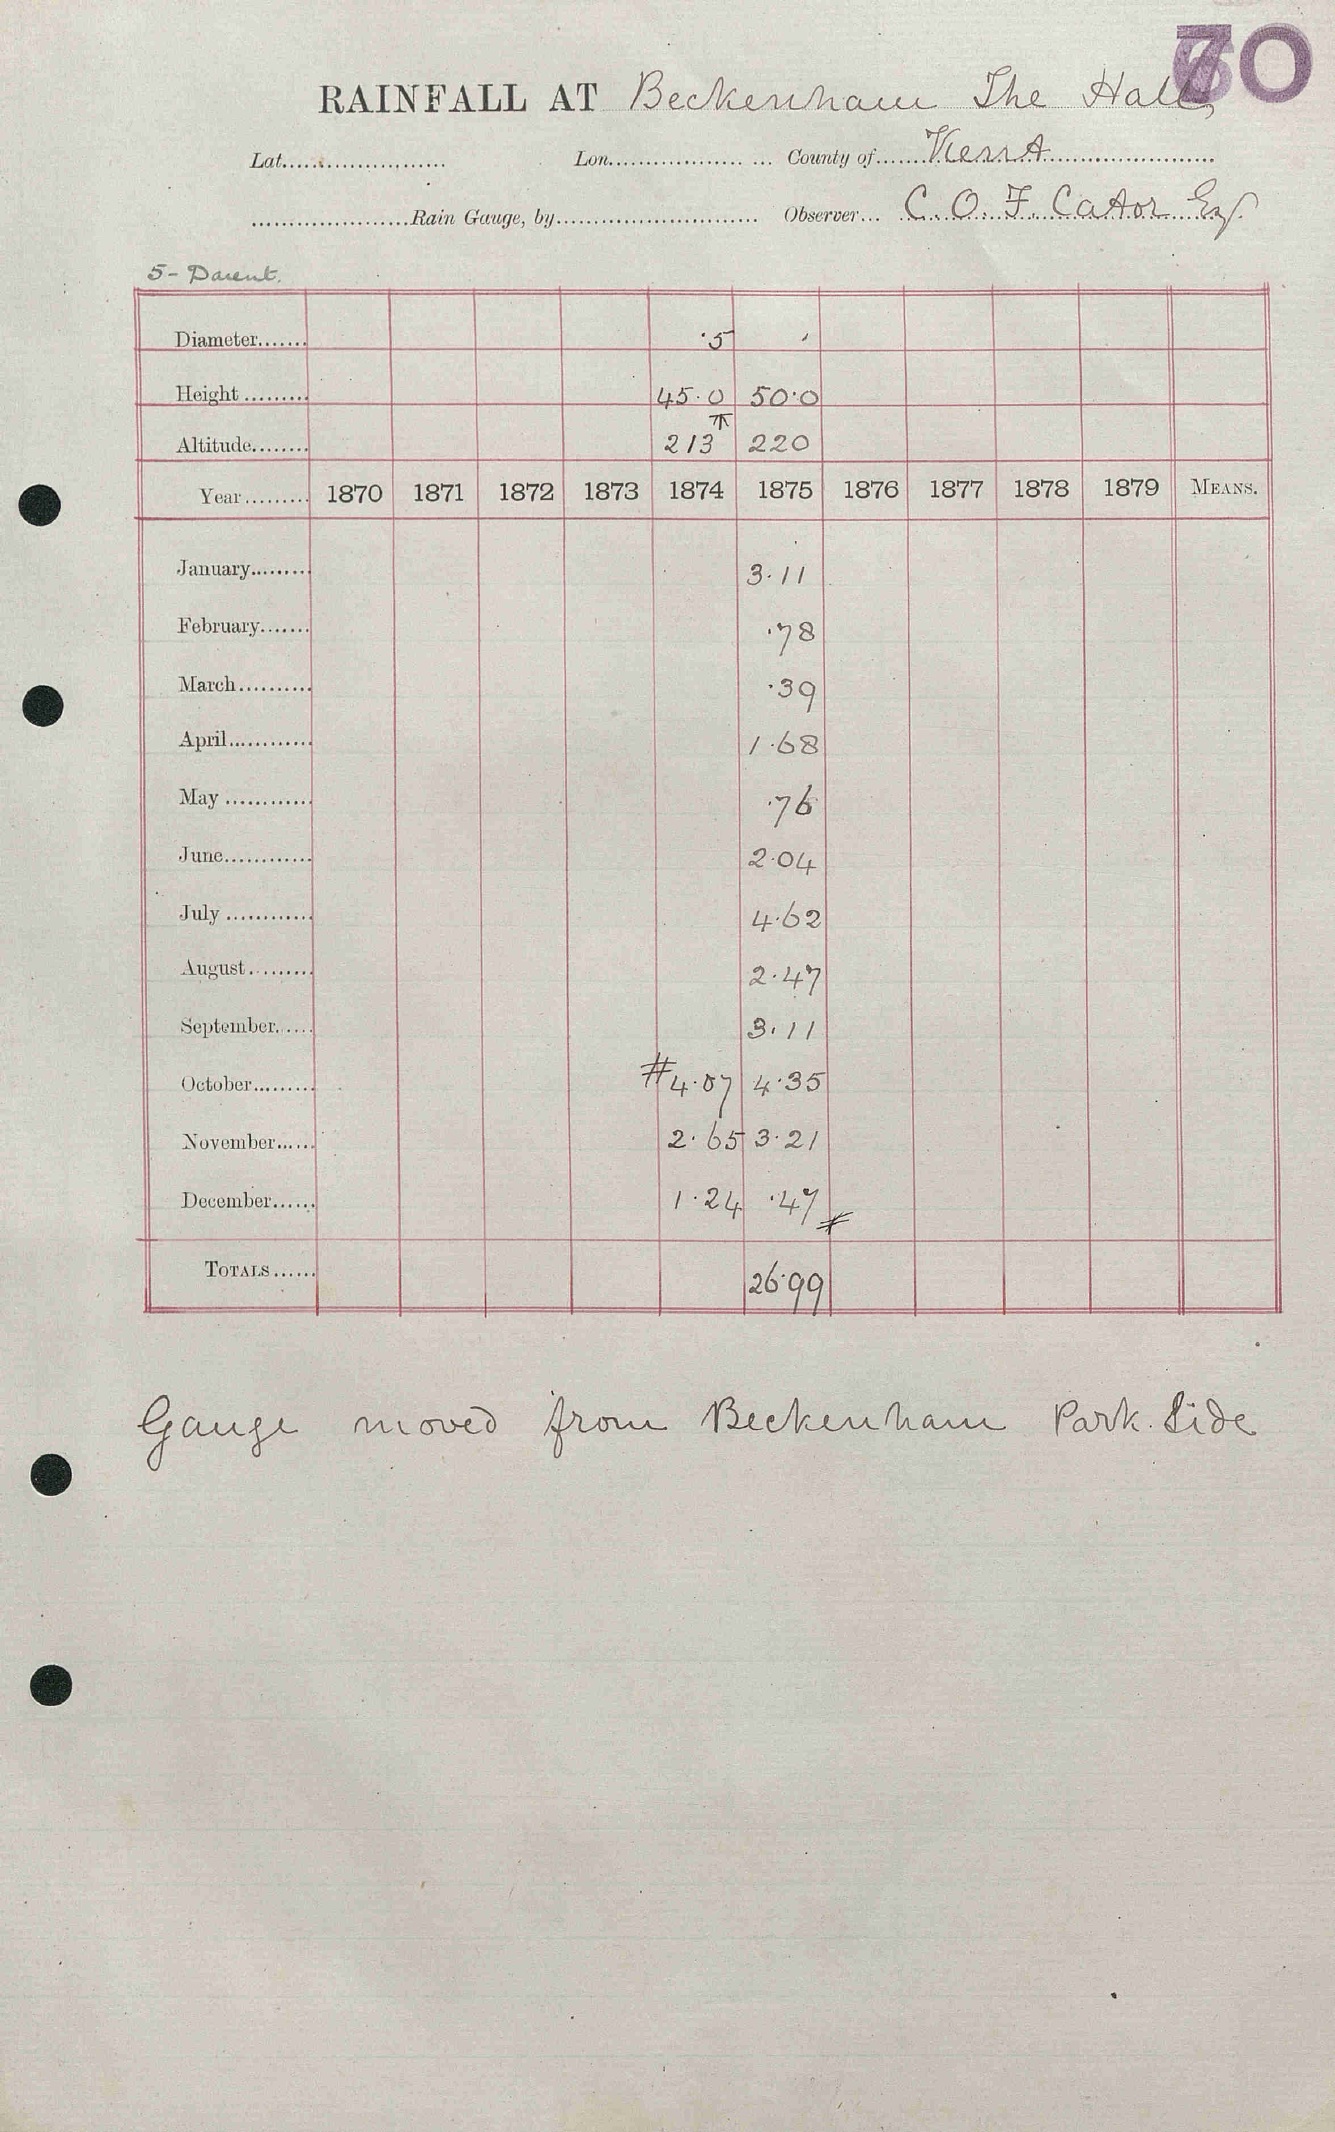 70
RAINFALL AT Beckenham The Hall,
Lat. Lon. County of Kent
Rain Gauge, by Observer C. O. F. Cator Esq.
5 - Darent.
Diameter ·5 ′
Height 45·0 50·0
Altitude 213 T 220
Year 1870 1871 1872 1873 1874 1875 1876 1877 1878 1879 MEANS.
January 3·11
February ·78
March ·39
April 1·68
May ·76
June 2·04
July 4·62
August 2·47
September 3·11
October #4·07 4·35
November 2·65 3·21
December 1·24 ·47 #
TOTALS 26·99
Gauge moved from Beckenham Park Side